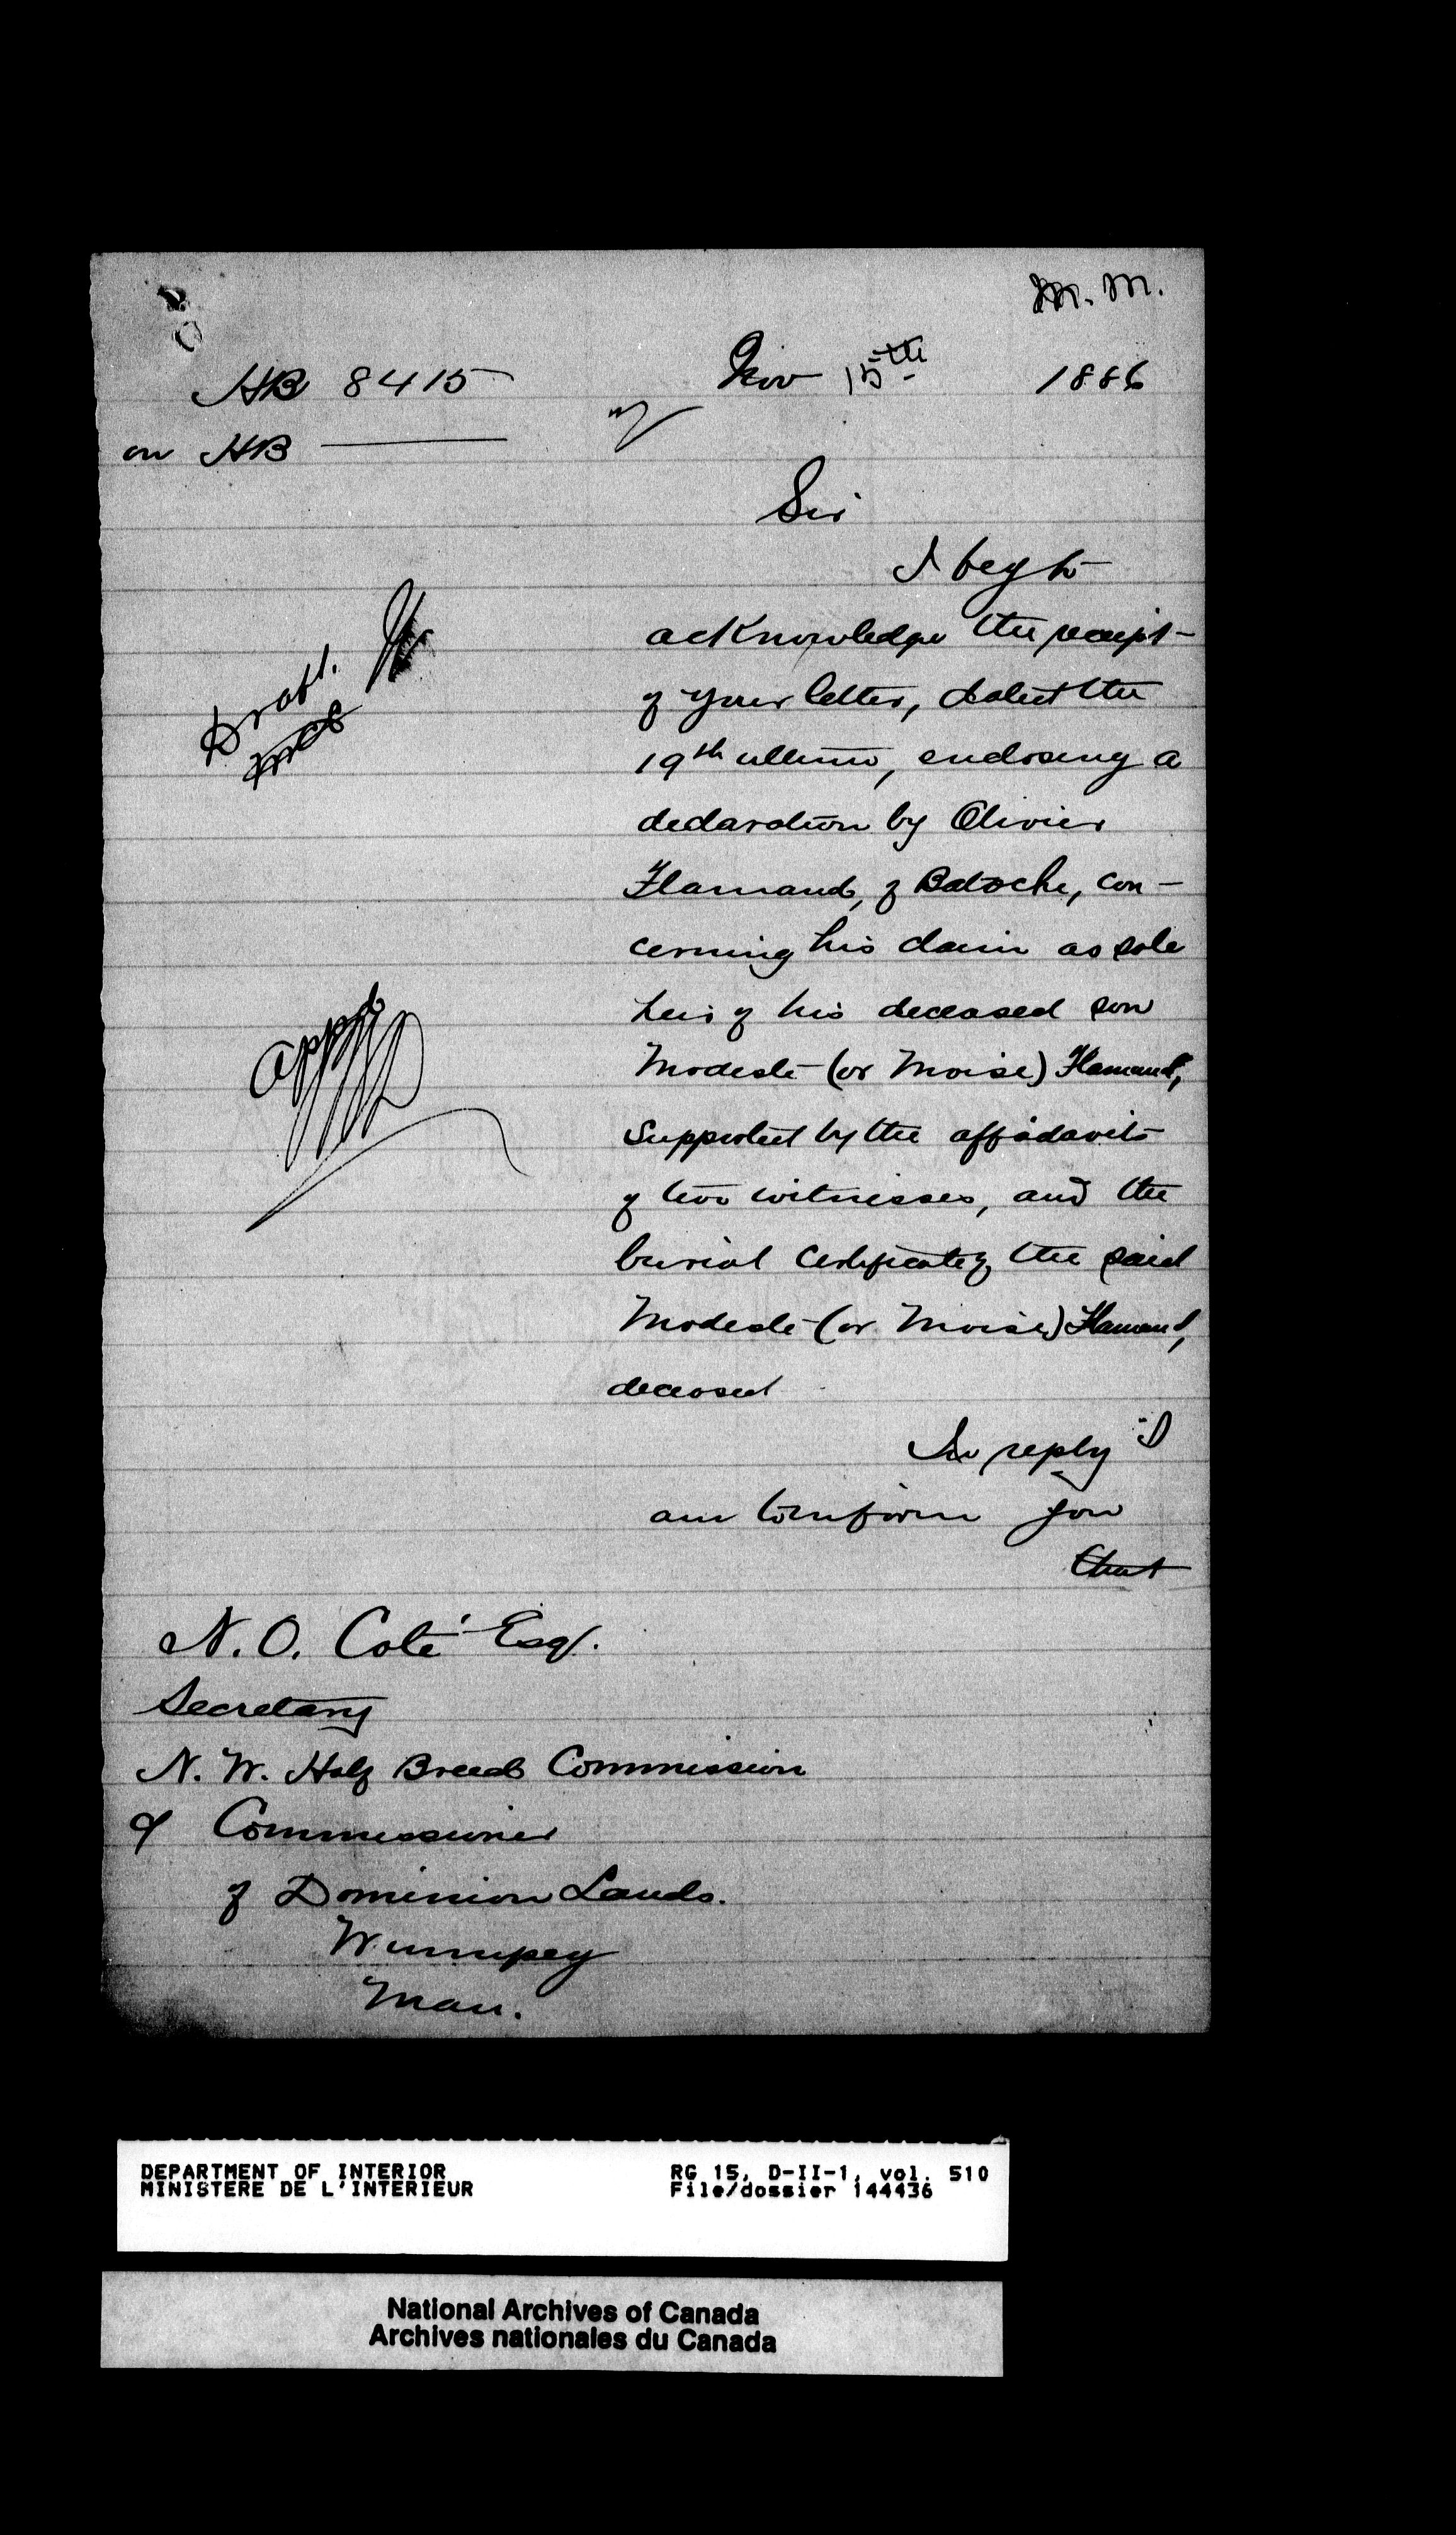 M. M.
HB 8415 Nov 15th 1886
on HB
Sir
I beg to
acknowledge the receipt
of your letter, dated the
19th ultimo, enclosing a
declaration by Olivier
Flamand, of Batoche, con-
cerning his claim as sole
heir of his deceased son
Modeste (or Moise) Flamand,
supported by the affidavits
of two witnesses, and the
burial certificate of the said
Modeste (or Moise) Flamand,
deceased
In reply I
am to inform you
that
Draft.
appd
N. O. Coté Esq.
Secretary
N. W. Half Breed Commission
of Commissioner
of Dominion Lands.
Winnipeg
Man.
DEPARTMENT OF INTERIOR RG 15, D-II-1, vol. 510
MINISTERE DE L'INTERIEUR File/dossier 144436
National Archives of Canada
Archives nationales du Canada